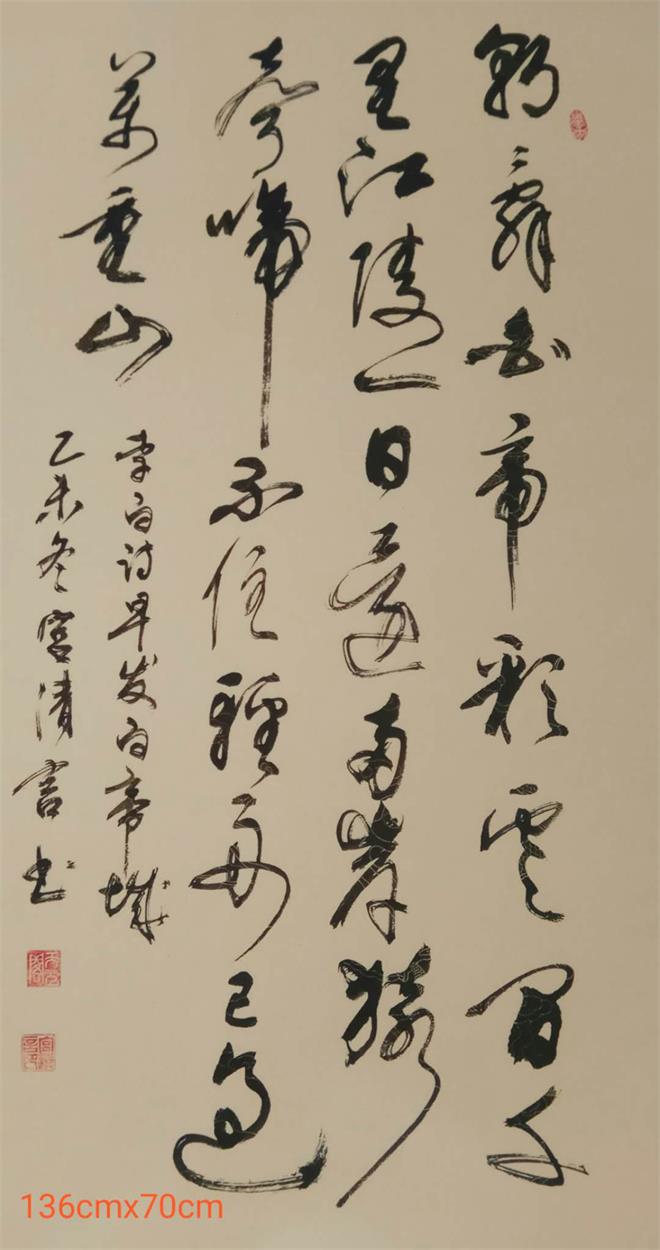 朝辞白帝彩雲間千
里江陵一日還兩岸猿
聲啼不住輕舟已過
萬重山
李白诗早发白帝城
乙未冬宫清言书
136cmx70cm